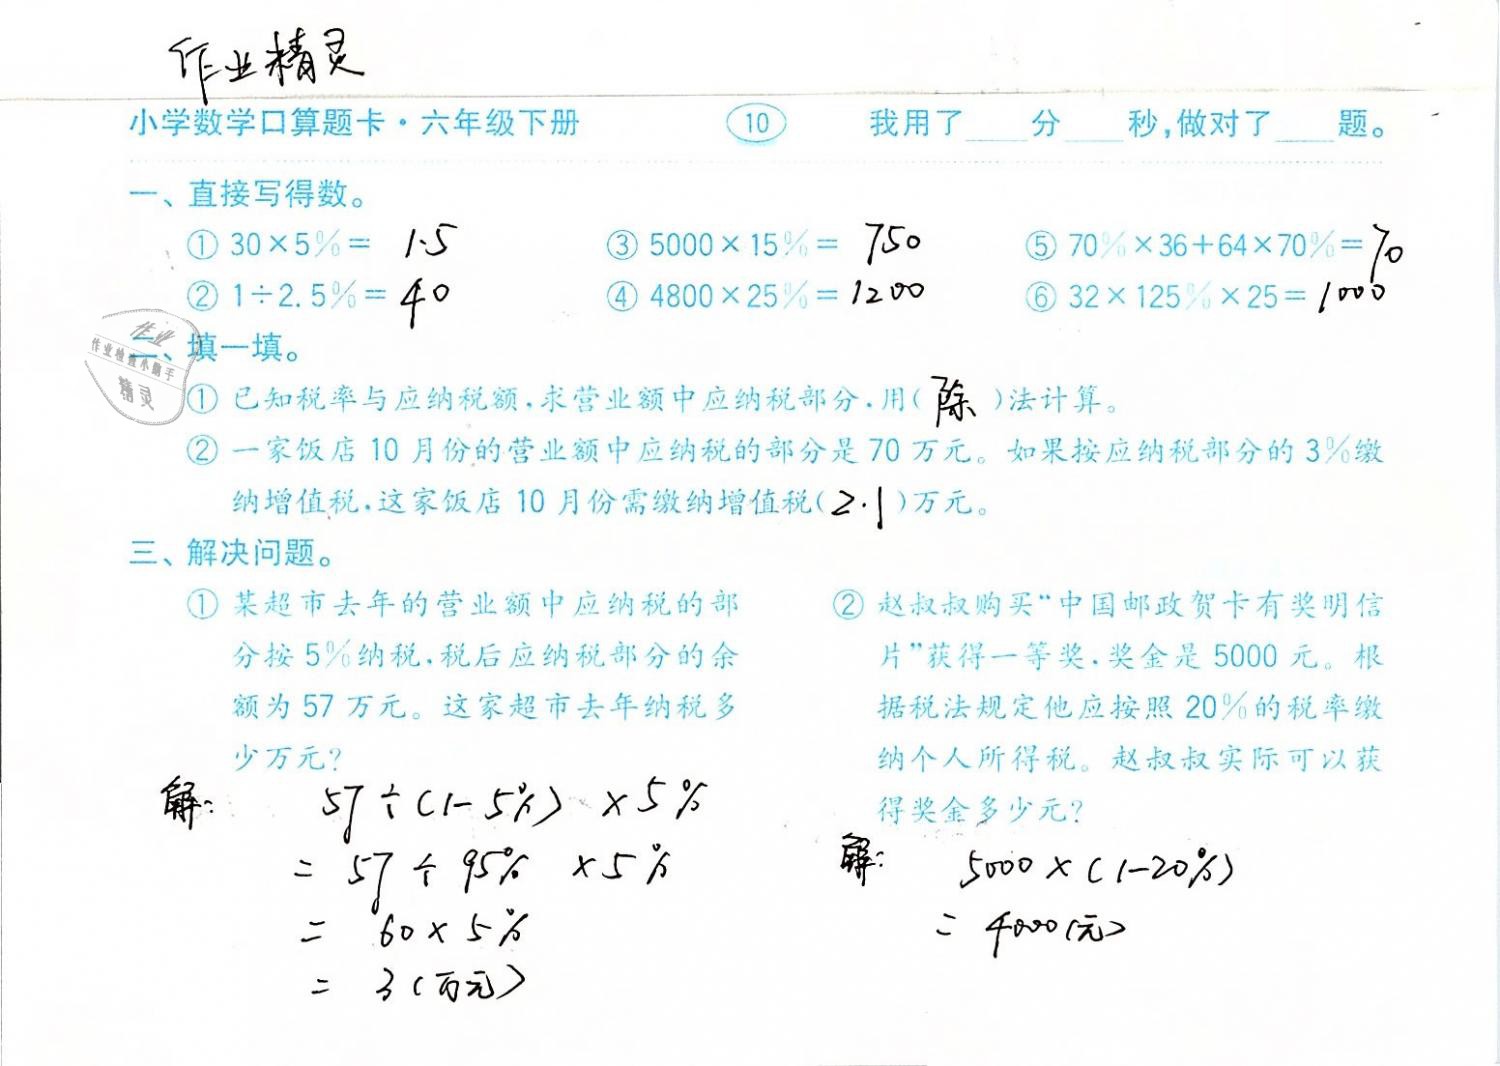 作业精灵
小学数学口算题卡·六年级下册 10 我用了____分____秒,做对了____题。
一、直接写得数。
① 30×5%= 1.5 ③ 5000×15%= 750 ⑤ 70%×36+64×70%= 70
② 1÷2.5%= 40 ④ 4800×25%= 1200 ⑥ 32×125%×25= 1000
二、填一填。
作业
作业检查小助手
精灵
① 已知税率与应纳税额,求营业额中应纳税部分,用(除)法计算。
② 一家饭店 10 月份的营业额中应纳税的部分是 70 万元。如果按应纳税部分的 3%缴
纳增值税,这家饭店 10 月份需缴纳增值税(2.1)万元。
三、解决问题。
① 某超市去年的营业额中应纳税的部
分按 5%纳税,税后应纳税部分的余
额为 57 万元。这家超市去年纳税多
少万元?
解: 57÷(1-5%)×5%
= 57÷95%×5%
= 60×5%
= 3(万元)
② 赵叔叔购买“中国邮政贺卡有奖明信
片”获得一等奖,奖金是 5000 元。根
据税法规定他应按照 20%的税率缴
纳个人所得税。赵叔叔实际可以获
得奖金多少元?
解: 5000×(1-20%)
= 4000(元)